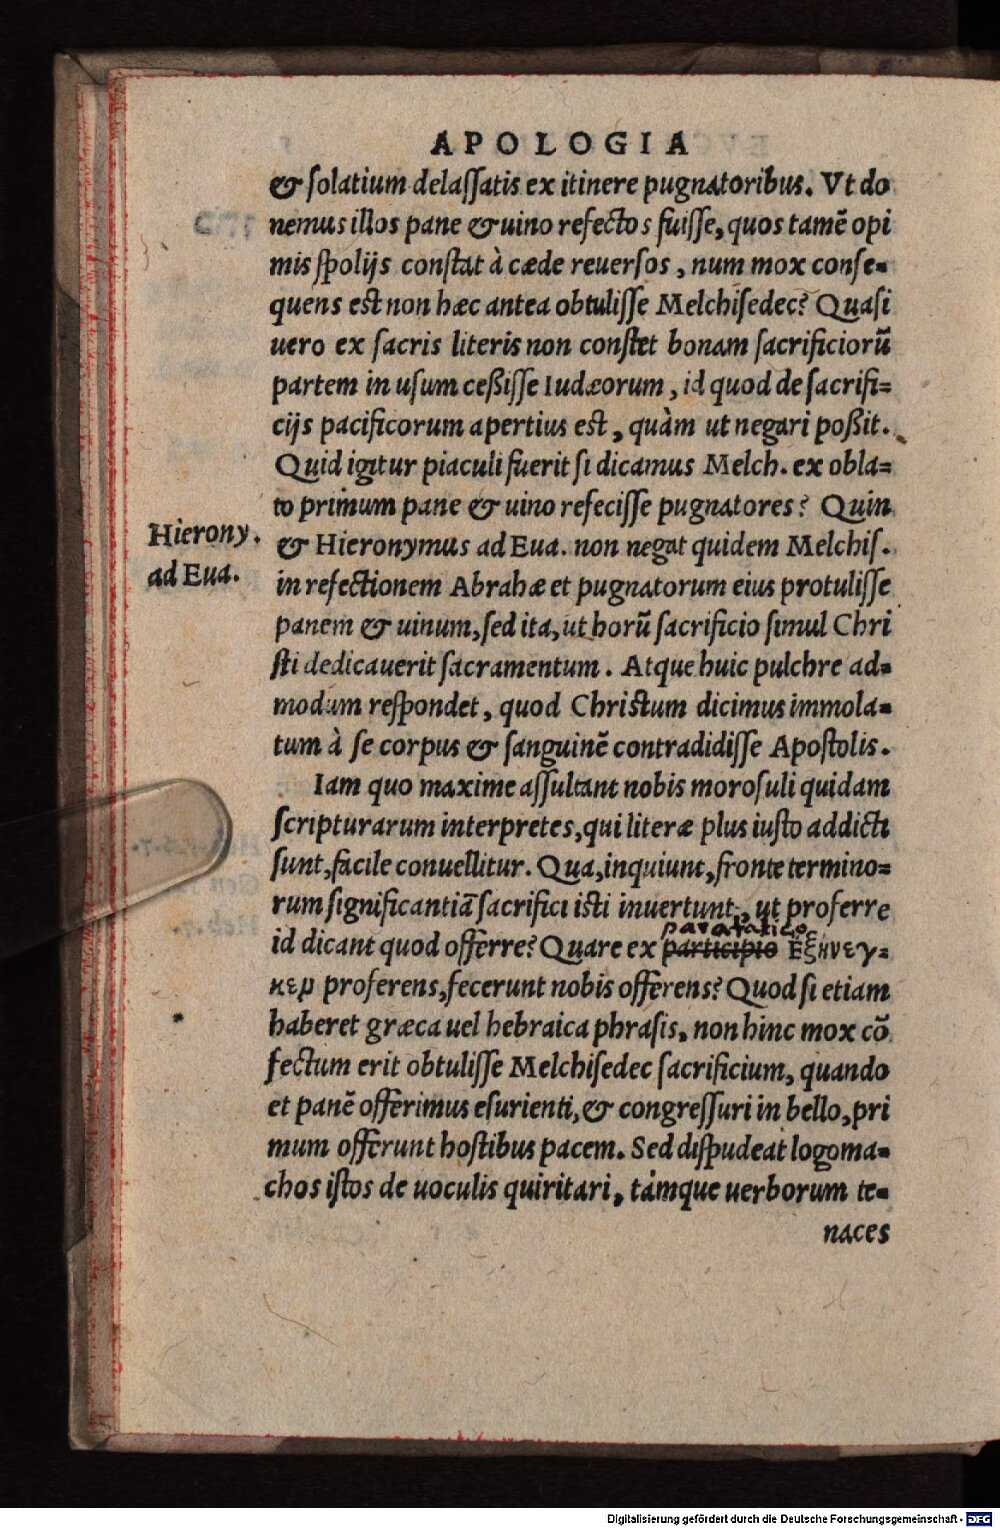 APOLOGIA
& solatium delassatis ex itinere pugnatoribus. Vt do
nemus illos pane & uino refectos fuisse, quos tamē opi
mis spolijs constat à cæde reuersos, num mox conse=
quens est non hæc antea obtulisse Melchisedec? Quasi
uero ex sacris literis non constet bonam sacrificiorū
partem in usum ceßisse Iudæorum, id quod de sacrifi=
cijs pacificorum apertius est, quàm ut negari poßit.
Quid igitur piaculi fuerit si dicamus Melch. ex obla=
to primum pane & uino refecisse pugnatores? Quin
Hierony.
ad Eua.
& Hieronymus ad Eua. non negat quidem Melchis.
in refectionem Abrahæ et pugnatorum eius protulisse
panem & uinum, sed ita, ut horū sacrificio simul Chri
sti dedicauerit sacramentum. Atque huic pulchre ad=
modum respondet, quod Christum dicimus immola=
tum à se corpus & sanguinē contradidisse Apostolis.
Iam quo maxime assultant nobis morosuli quidam
scripturarum interpretes, qui literæ plus iusto addicti
sunt, facile conuellitur. Qua, inquiunt, fronte termino=
rum significantiā sacrifici isti inuertunt, ut proferre
paratatico
id dicant quod offerre? Quare ex participio Ἐξήνεγ=
κεν proferens, fecerunt nobis offerens? Quod si etiam
haberet græca uel hebraica phrasis, non hinc mox cō
fectum erit obtulisse Melchisedec sacrificium, quando
et panē offerimus esurienti, & congressuri in bello, pri
mum offerunt hostibus pacem. Sed dispudeat logoma=
chos istos de uoculis quiritari, támque uerborum te=
naces
Digitalisierung gefördert durch die Deutsche Forschungsgemeinschaft - DFG